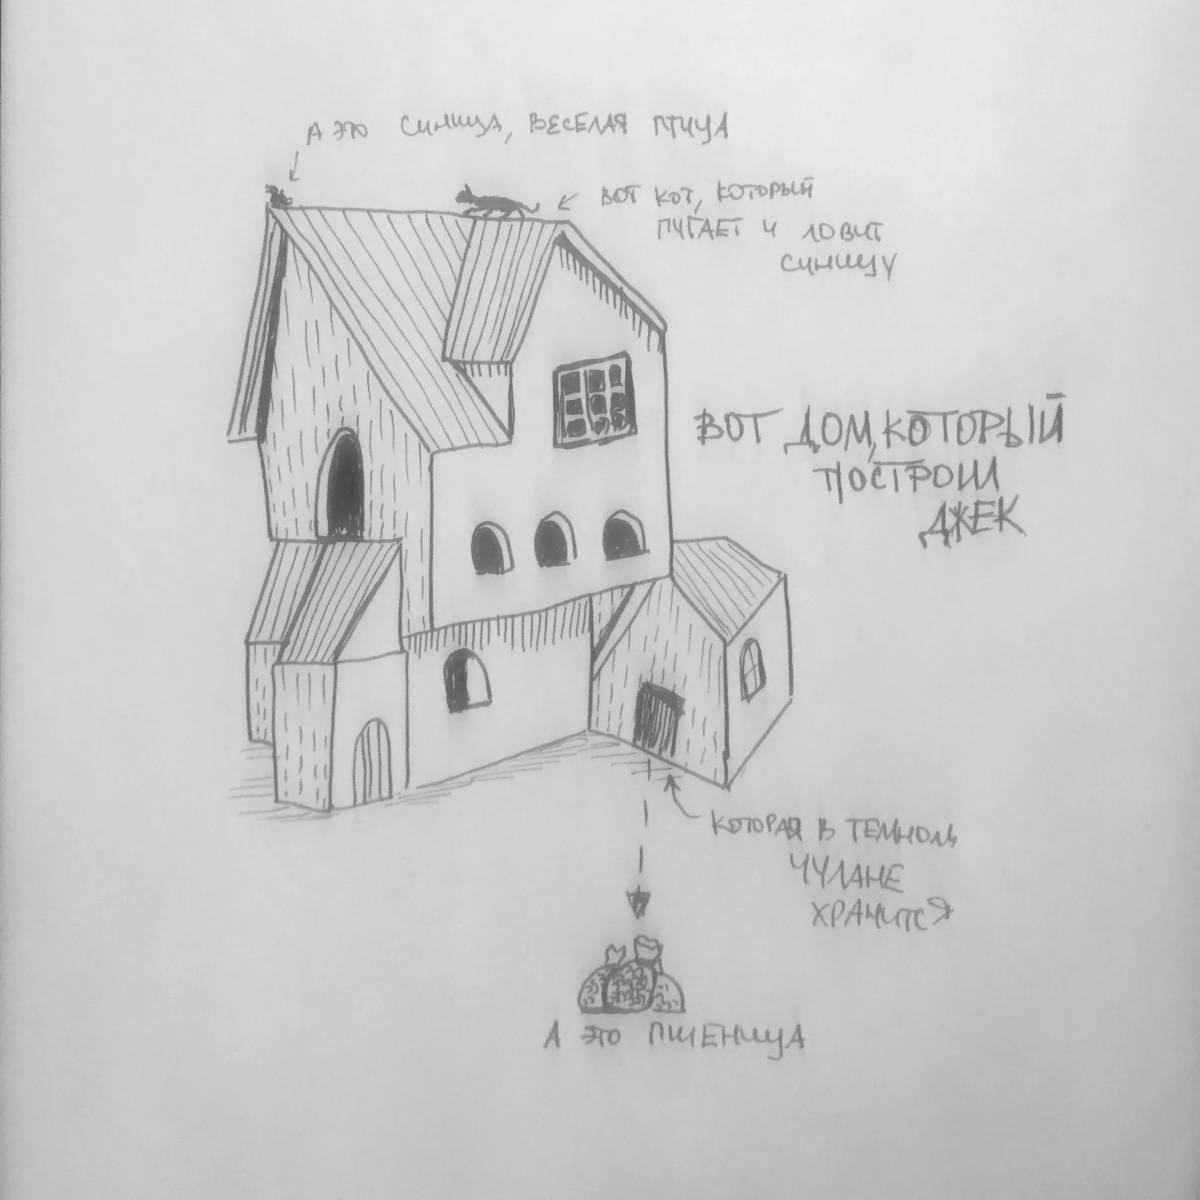 А ЭТО СИНИЦА, ВЕСЕЛАЯ ПТИЦА
ВОТ КОТ, КОТОРЫЙ
ПУГАЕТ И ЛОВИТ
СИНИЦУ
ВОТ ДОМ, КОТОРЫЙ
ПОСТРОИЛ
ДЖЕК
КОТОРАЯ В ТЕМНОМ
ЧУЛАНЕ
ХРАНИТСЯ
А ЭТО ПШЕНИЦА